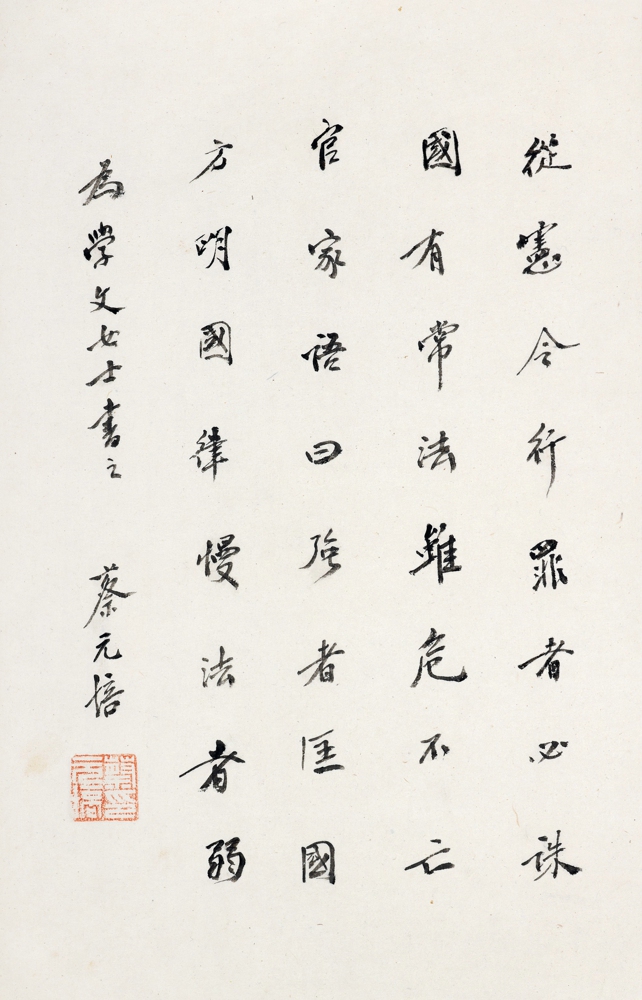 從憲令行罪者必誅
國有常法雖危不亡
官家語曰強者匡國
方明國律慢法者弱
為學文女士書之 蔡元培